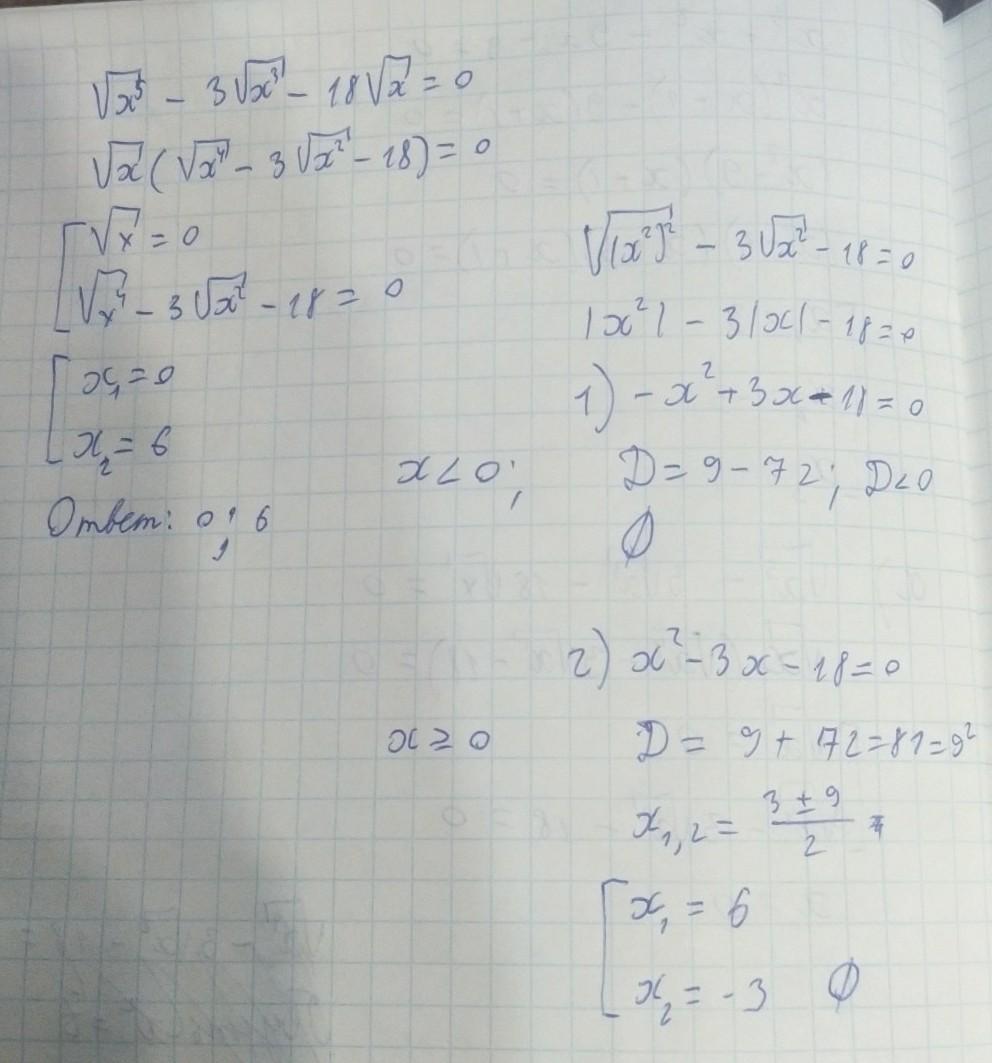 √x⁵ - 3√x³ - 18√x = 0
√x (√x⁴ - 3√x² - 18) = 0
[ √x = 0
√x⁴ - 3√x² - 18 = 0
[ x₁ = 0
x₂ = 6
Ответ: 0; 6
√(x²)² - 3√x² - 18 = 0
|x²| - 3|x| - 18 = 0
1) -x² + 3x - 18 = 0
x < 0; D = 9 - 72; D < 0
∅
2) x² - 3x - 18 = 0
x ≥ 0 D = 9 + 72 = 81 = 9²
x₁,₂ = (3 ± 9)/2
[ x₁ = 6
x₂ = -3 ∅